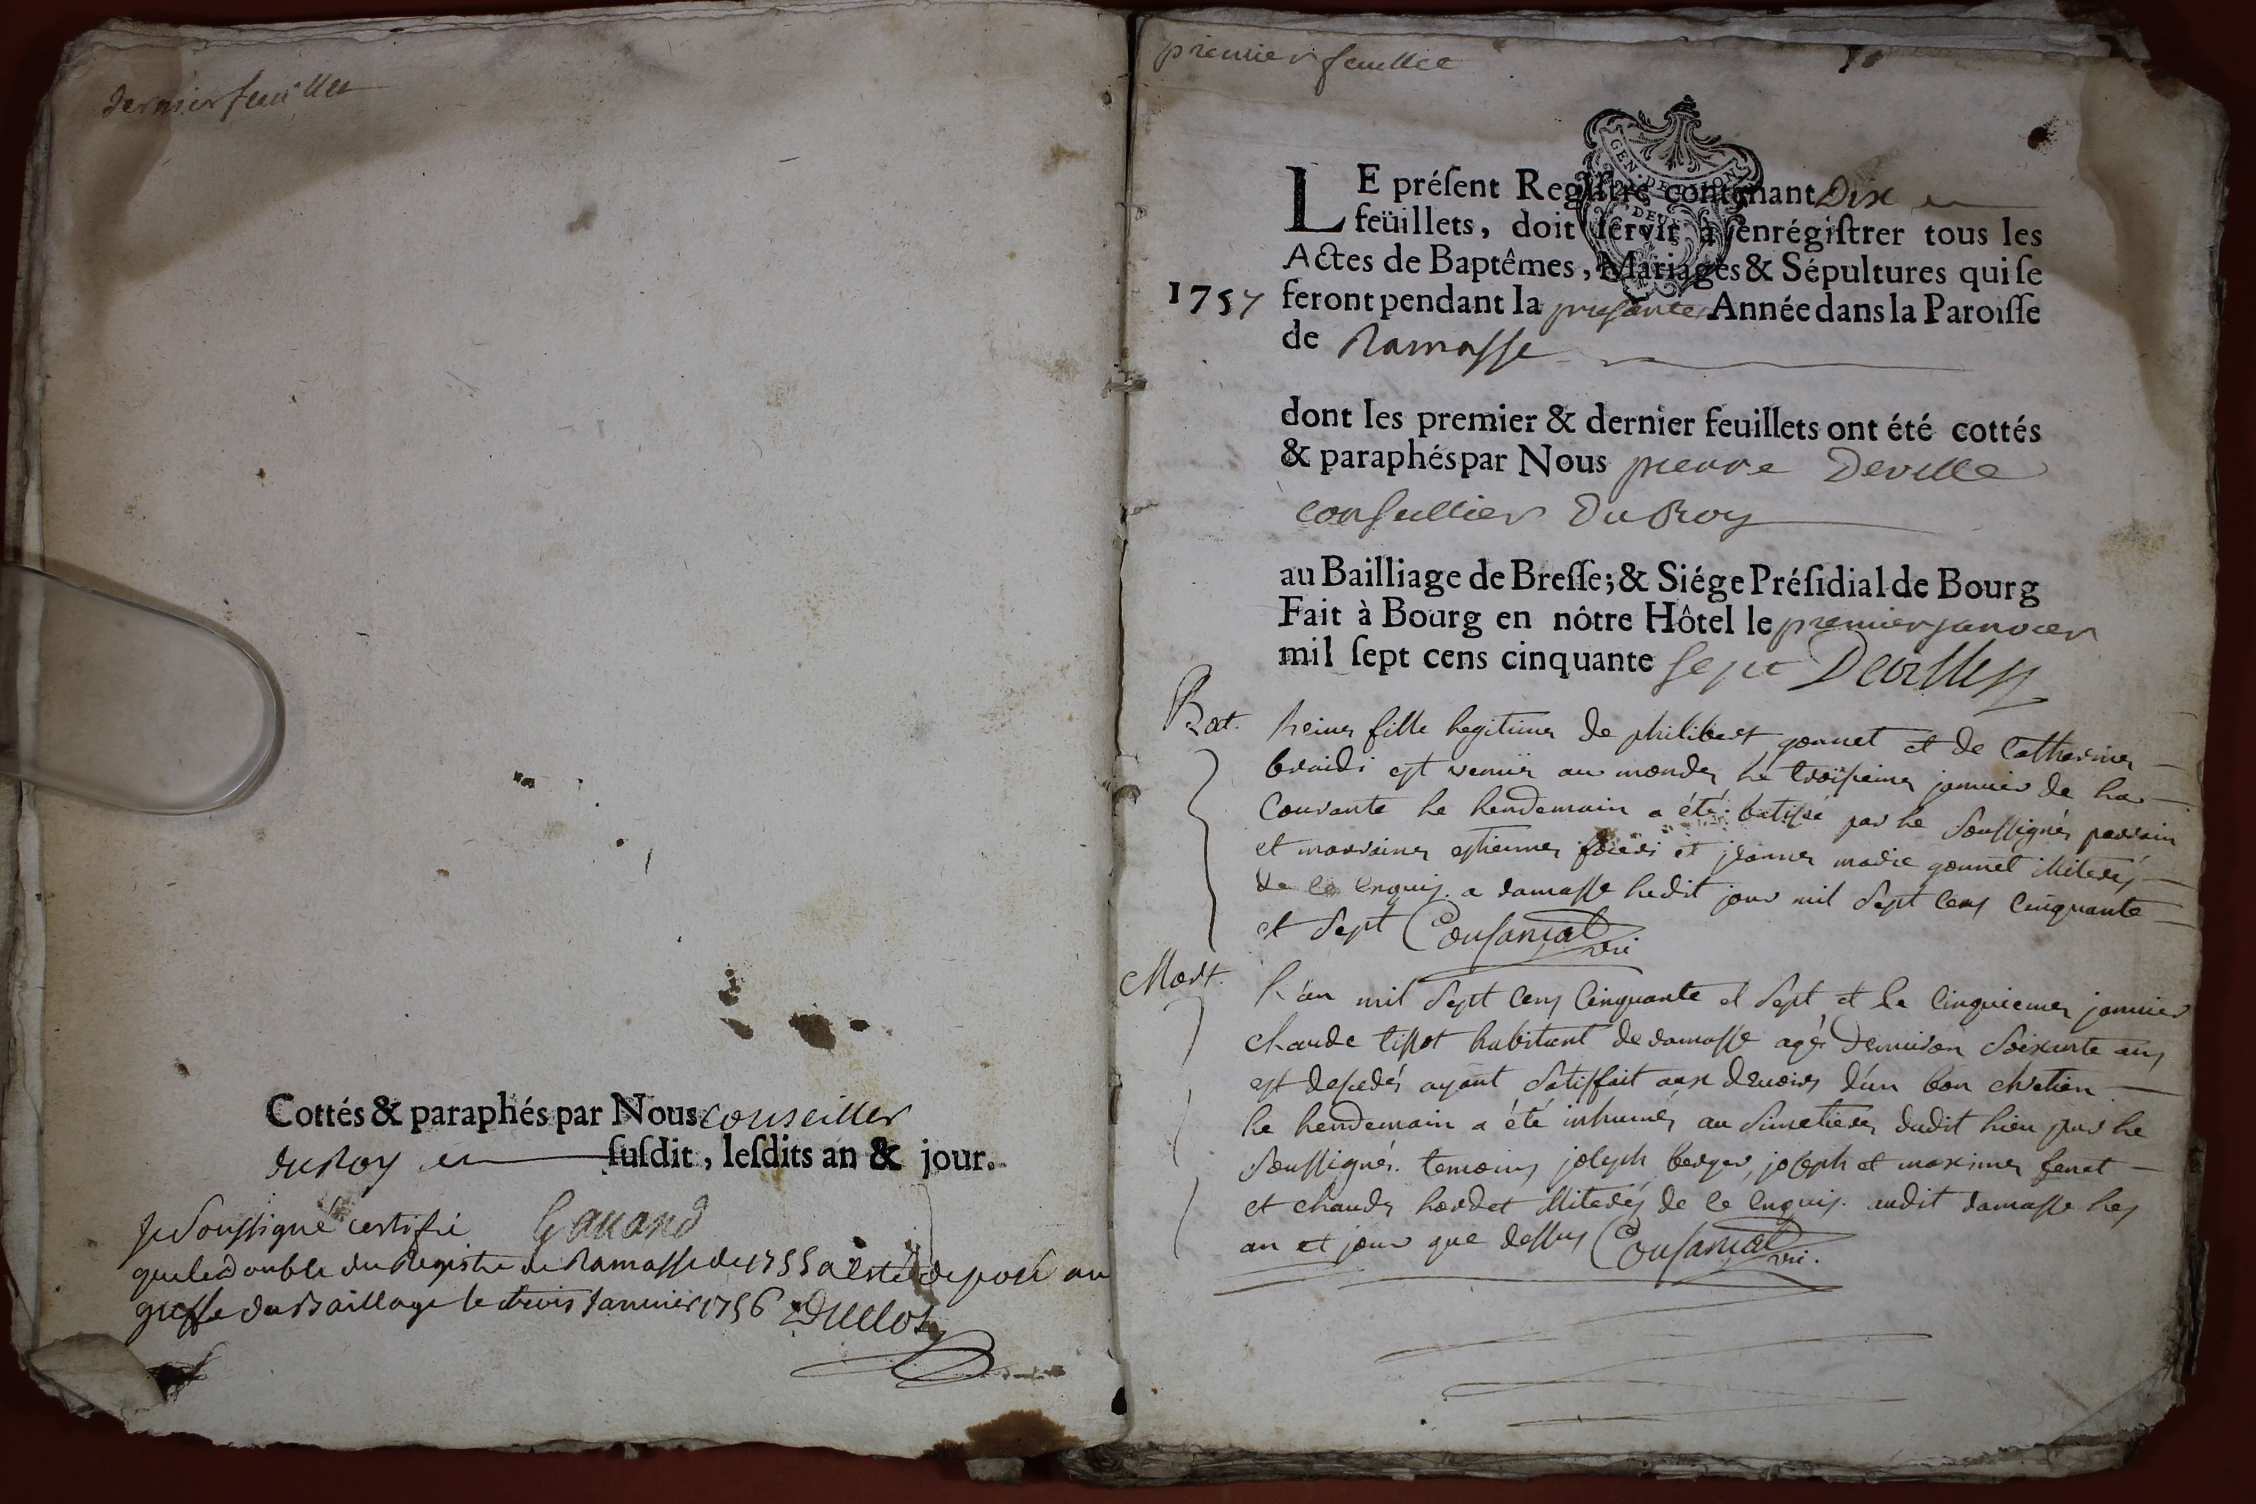 dernier feuillet
Cottés & paraphés par Nous conseiller
du Roy suſdit, leſdits an & jour.
Je Soussigné certifie
que le double du Registre de Ramasse de 1755 a esté deposé au
greffe du Baillage le trois Janvier 1756 Duclos
premier feuillet
GEN. DE DIJON
DEUX
LE préſent Regiſtre contenant Dix
feüillets, doit ſervir à enrégiſtrer tous les
Actes de Baptêmes, Mariages & Sépultures qui ſe
1757 feront pendant la presante Année dans la Paroiſſe
de Ramasse
dont les premier & dernier feuillets ont été cottés
& paraphés par Nous pierre Deville
conseillier Du Roy
au Bailliage de Breſſe; & Siége Préſidial de Bourg
Fait à Bourg en nôtre Hôtel le premier janvier
mil ſept cens cinquante sept Deville
Bat. Reine fille legitime de philibert gonnet et de Catherine
est venue au monde le troisieme janvier de la
Courante le lendemain a été batisé par le Soussigné parrain
et marraine estienne et jeanne marie gonnet illiterés
de ce enquis a ramasse ledit jour mil Sept Cens Cinquante
et Sept
Mort. L'an mil Sept Cens Cinquante et Sept et le Cinquieme janvier
claude tissot habitant de ramasse agé d'environ Soixante ans
est decedés ayant Satisfait aux devoirs d'un bon chretien
le lendemain a été inhumés au Simetiere dudit lieu par le
Soussignés. temoins joseph berger, joseph et maxime
et claude illiterés de ce enquis. audit ramasse les
an et jour que dessus